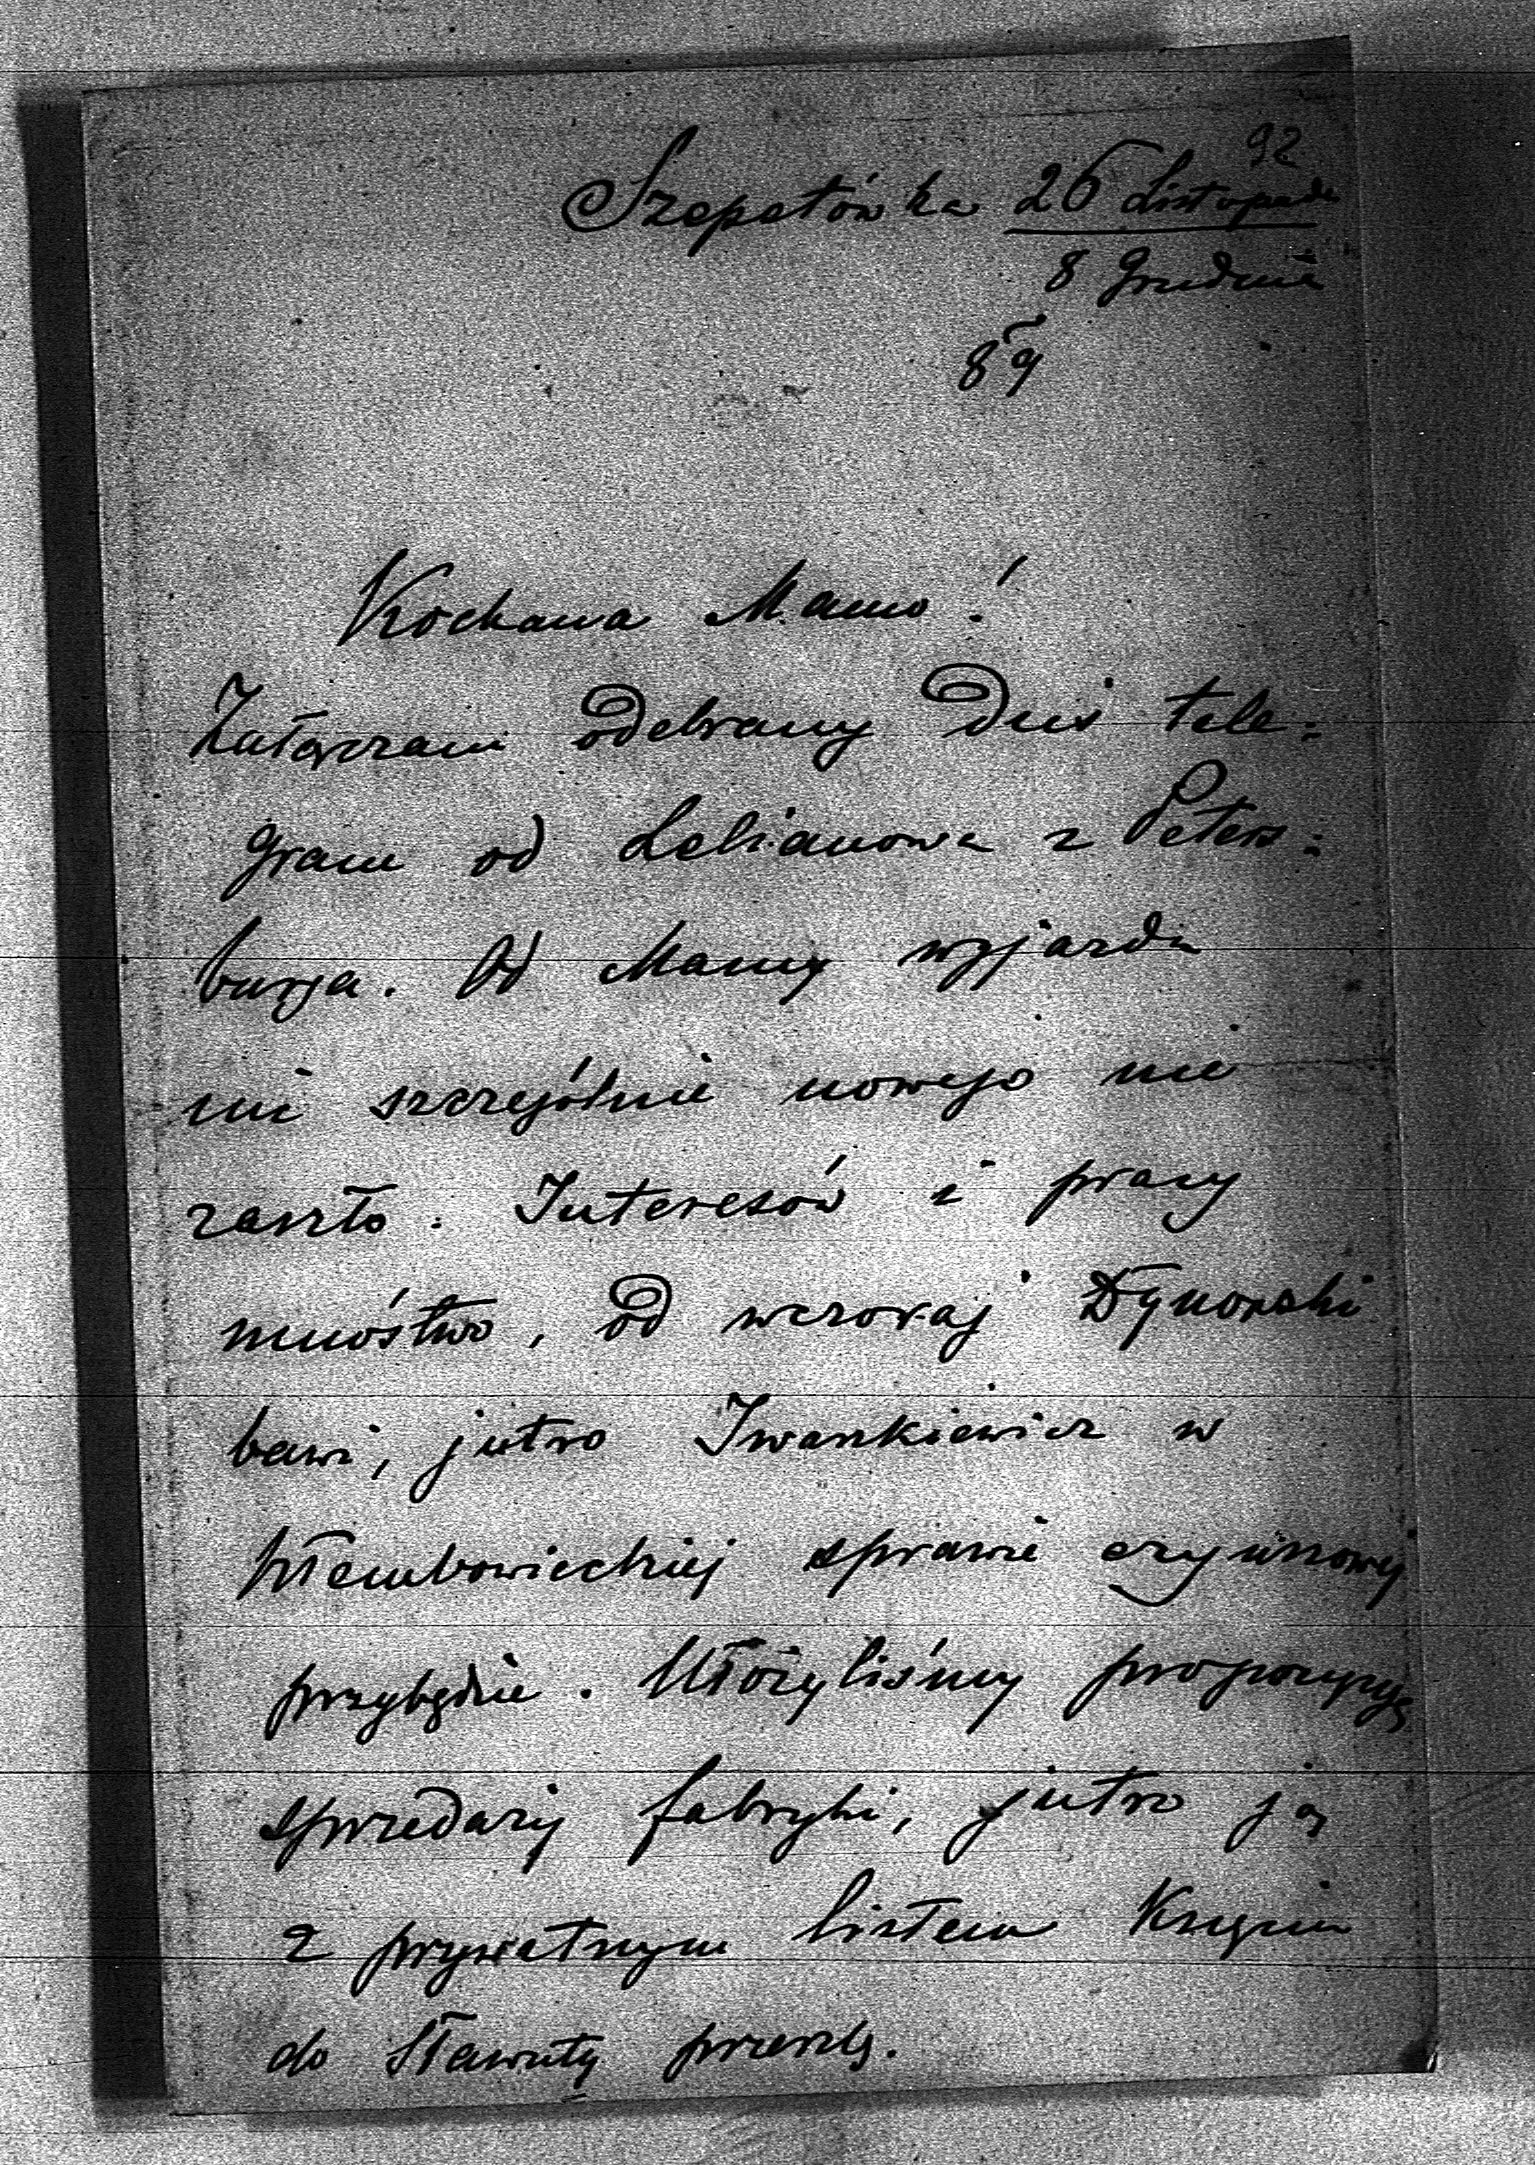 92
Szepetówka 26 Listopada
8 Grudnia
89
Kochana Mamo!
Załączam odebrany dziś tele:
gram od Lelianowa z Peters:
burga. Od Mamy wyjazdu
nic szczególnie nowego nie
zaszło. Interesów i pracy
mnóstwo, od wczoraj
bawi, jutro Iwaszkiewicz w
sprawie czynszowej
przybędzie. Ułożyliśmy propozycyę
sprzedaży fabryki, jutro ją
z prywatnym listem Księciu
do Sławuty przeszlę.